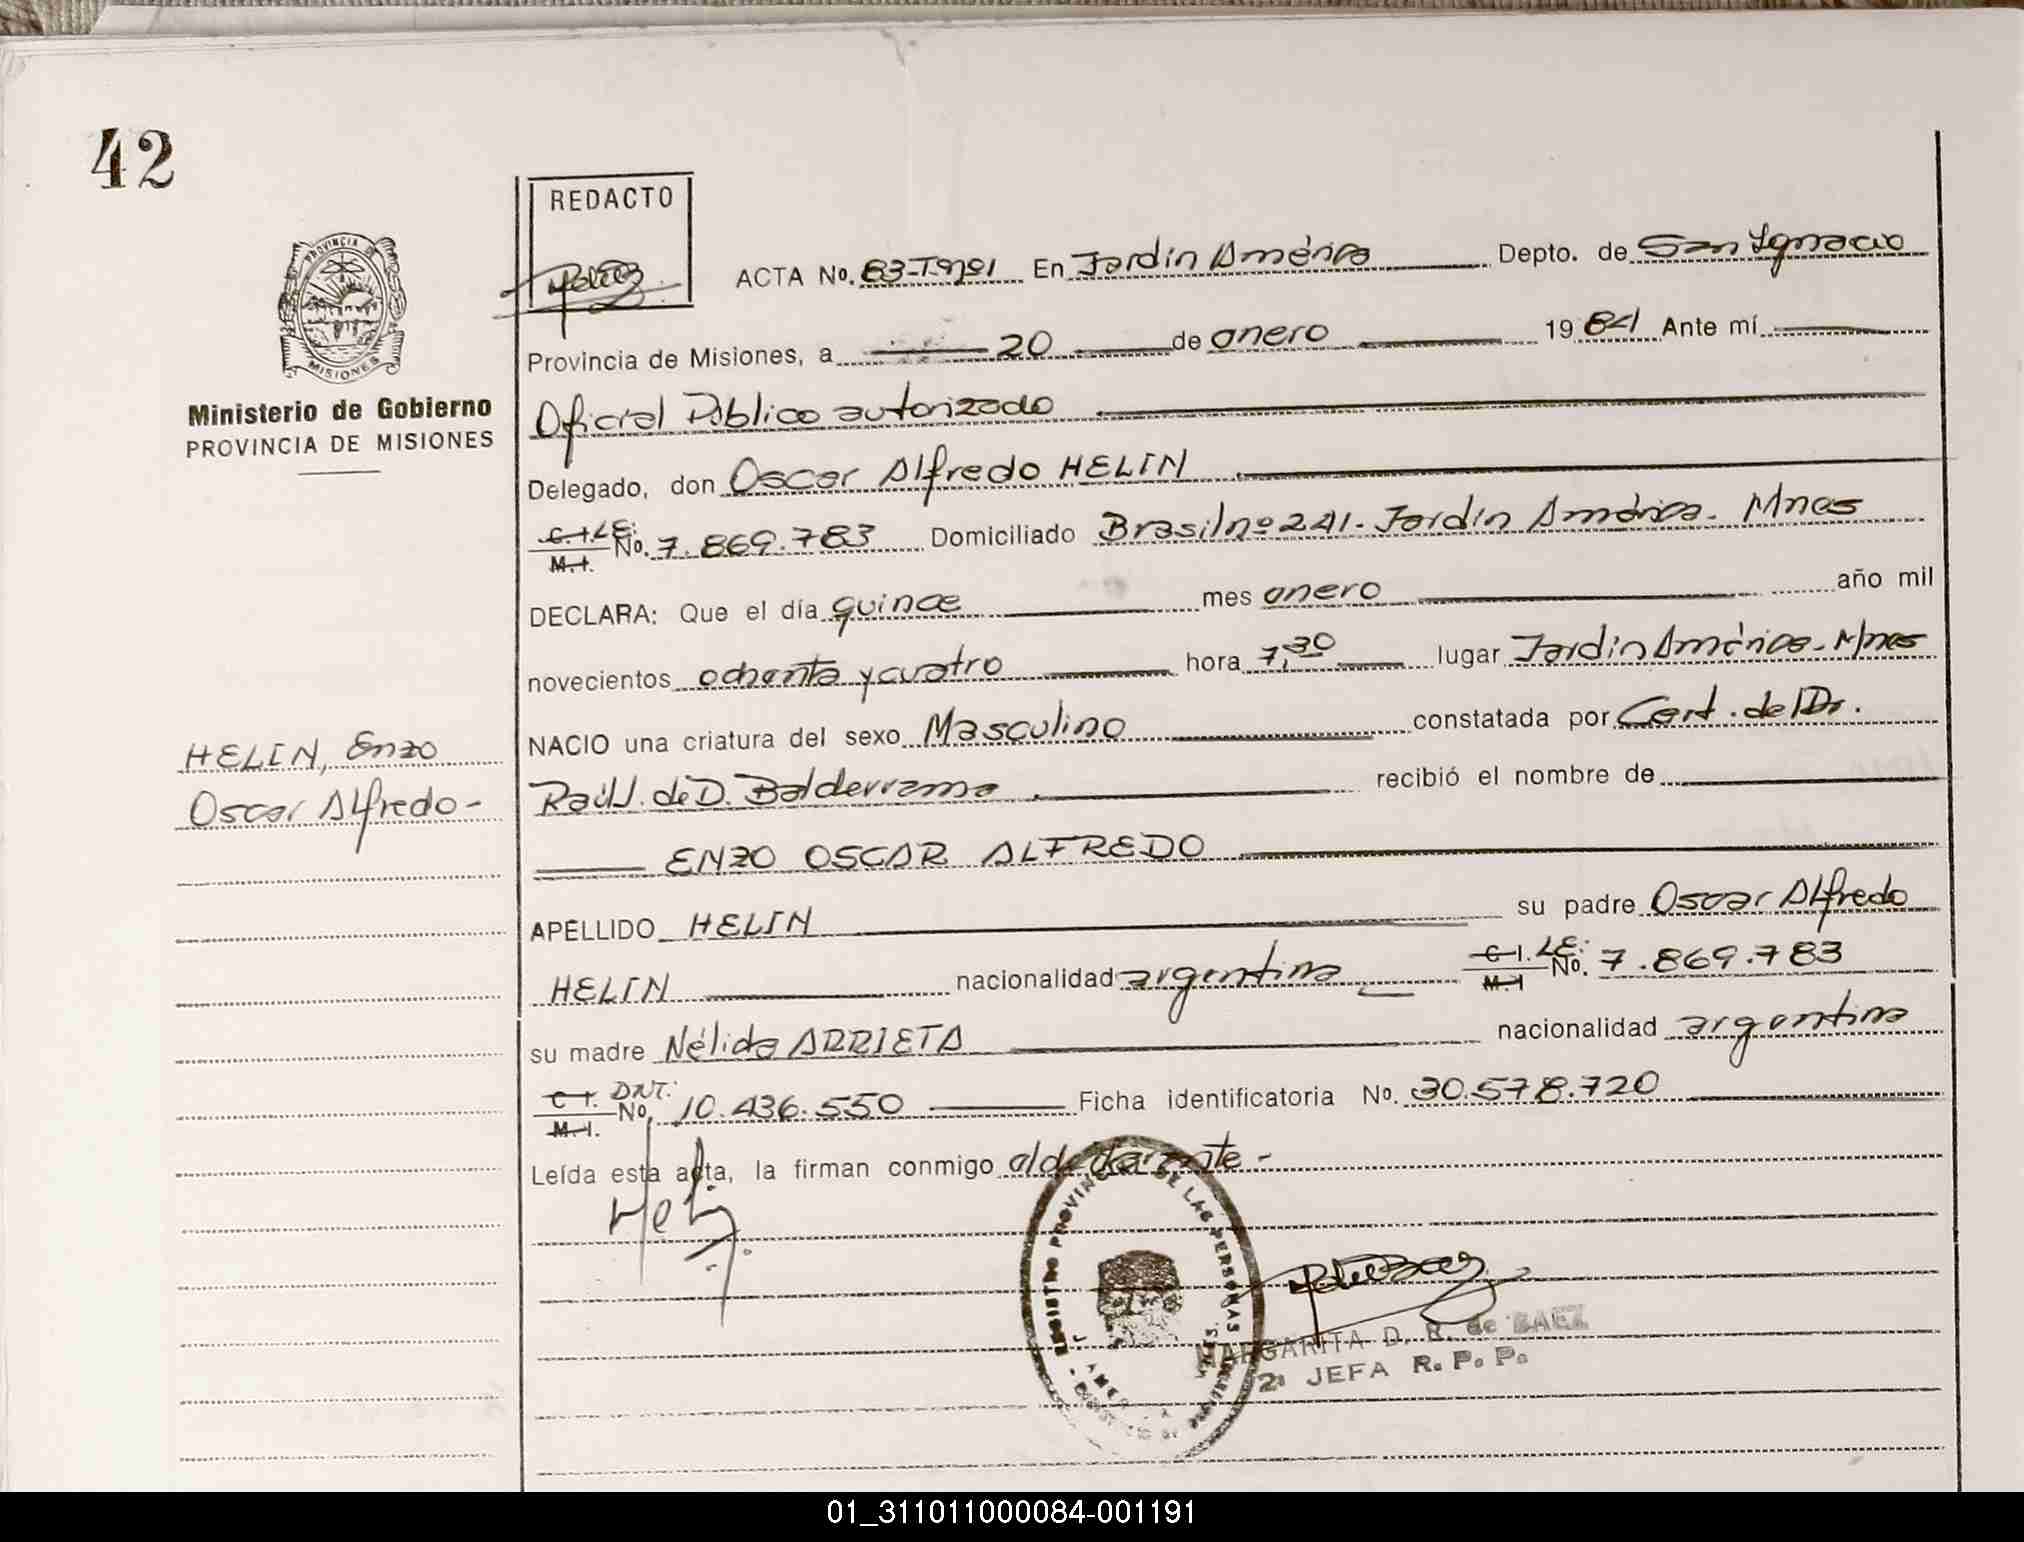 42
REDACTO
PROVINCIA DE
MISIONES
Ministerio de Gobierno
PROVINCIA DE MISIONES
ACTA No. 83-Tº1 En Jardín América Depto. de San Ignacio
Provincia de Misiones, a 20 de enero 1984 Ante mí
Oficial Público autorizado
Delegado, don Oscar Alfredo HELIN
C.I. L.E: M.I. No. 7.869.783 Domiciliado Brasil nº 241. Jardín América. Mnes
DECLARA: Que el día quince mes enero año mil
novecientos ochenta y cuatro hora 7,30 lugar Jardín América. Mnes
NACIO una criatura del sexo Masculino constatada por Cert. del Dr.
Raúl J. de D. Balderrama recibió el nombre de
ENZO OSCAR ALFREDO
HELIN, Enzo
Oscar Alfredo-
APELLIDO HELIN su padre Oscar Alfredo
HELIN nacionalidad argentina C.I. L.E: M.I No. 7.869.783
su madre Nélida ARRIETA nacionalidad argentina
C.I. DNI: M.I. No. 10.436.550 Ficha identificatoria No. 30.578.720
Leída esta acta, la firman conmigo el declarante-
REGISTRO PROVINCIAL DE LAS PERSONAS
MARGARITA D. R. de BAEZ
2ª JEFA R. P. P.
01_311011000084-001191